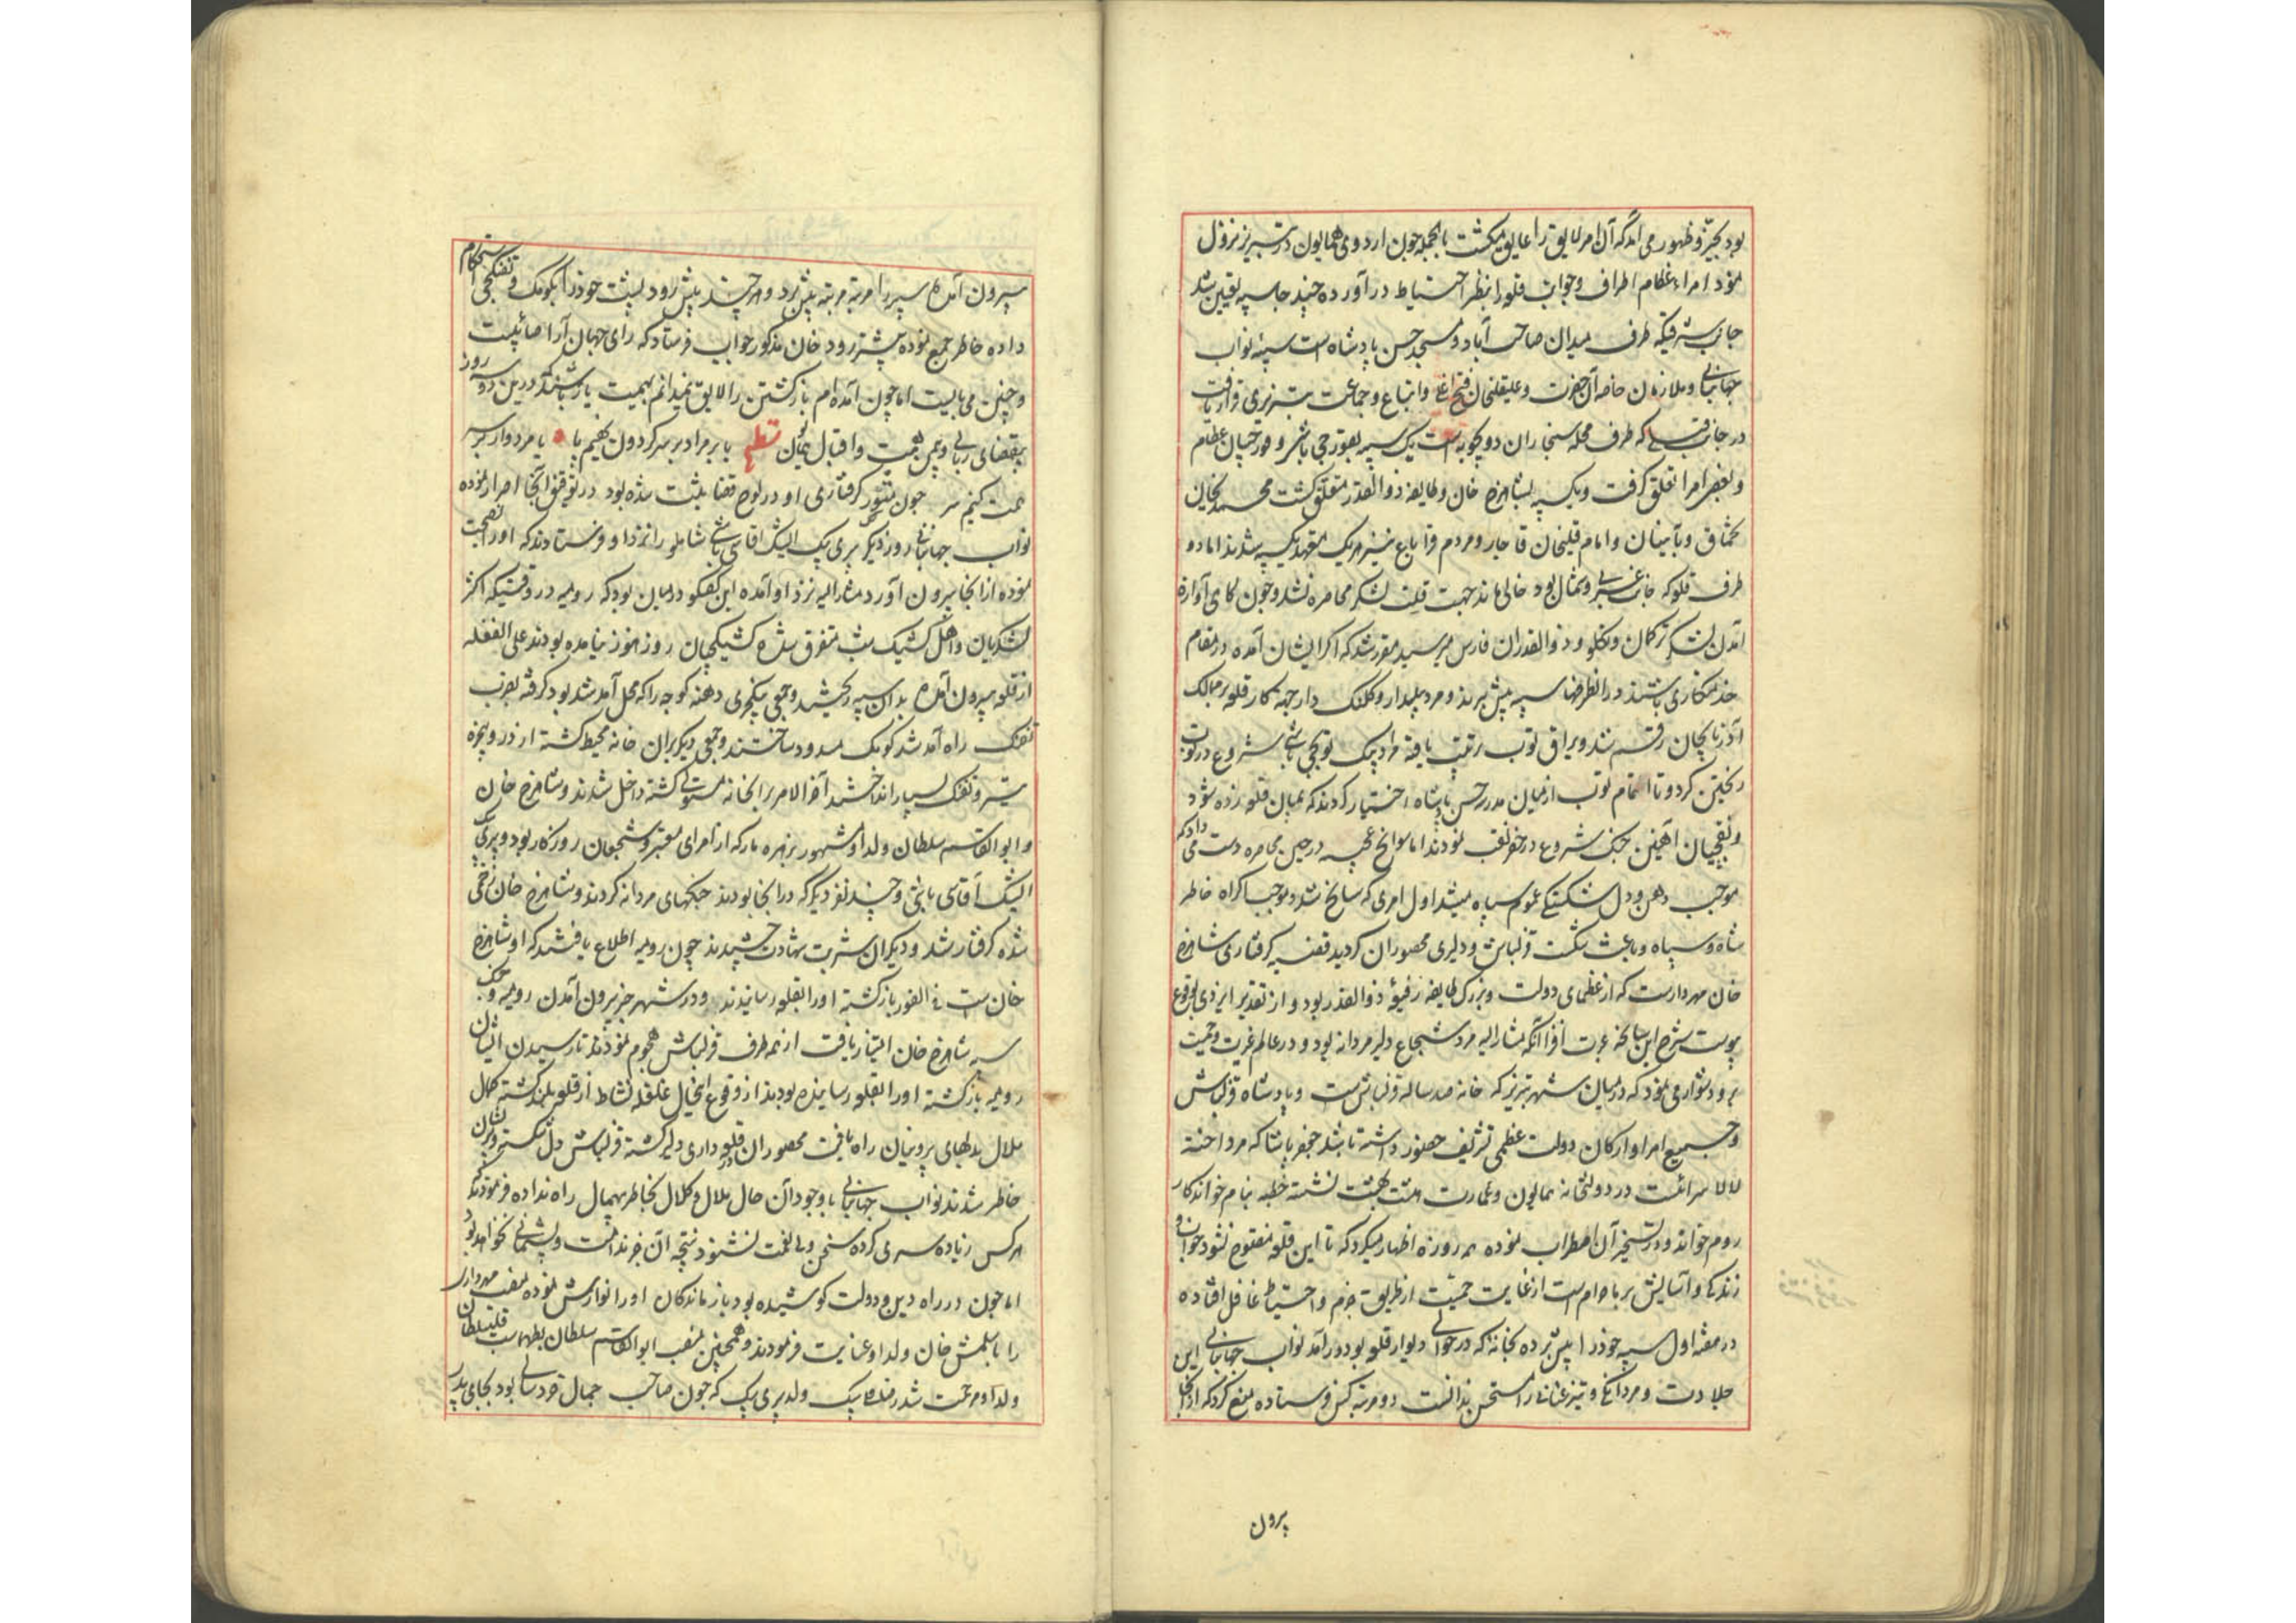 بود بحیز ظهور می‌آمد که آن امر لایق را عایق میگشت بالجمله چون اردوی همایون در تبریز نزول
نمود امراء عظام اطراف و جوانب قلعه را بنظر احتیاط در آورده چند جا سیبه تعیین شد
جانب شرقی که طرف میدان صاحب آباد و مسجد حسن پادشاه است سیبه نواب
جهانبانی و ملازمان خاصه آن حضرت و علیقلیخان فتح اغلی و اتباع و جماعت تبریزی قرار یافت
در جانب که طرف محله سنجاران دو یکسیبه بقورچی باشی و قورچیان عظام
و بعضی امرا تعلق گرفت و یکسیبه بشاهرخ خان و طایفه ذوالقدر متعلق گشت محمدیخان
تخماق و تابینان و امام قلیخان قاجار و مردم قراباغ نیز هر یک متعهد یکسیبه شدند اما دو
طرف قلعه که جانب غربی و شمال بود خالی ماند جهت قلت لشکر محاصره نشد و چون آوازه
آمدن لشکر ترکمان و تکلو و ذوالقدران فارس میرسید مقرر شد که اگر ایشان آمده در مقام
خدمتکاری باشند در انطرفها سیبه پیش برند و مرد بیلدار و کلنگ دار جهة کار قلعه بر ممالک
آذربایجان رقم شد و یراق توپ ترتیب یافته مراد بیک توپچی باشی شروع در توپ
ریختن کرد و تا اتمام توپ از میان مدرسه حسن پادشاه اختیار کردند که بمیان قلعه زده شود
و نقبچیان آهنین چنگ شروع در حفر نقب نمودند اما سوانح عجیبه در حین محاصره دست میداد که
موجب وهن و دل شکستگی عموم سپاه میشد اول امری که سانح شد و موجب اکراه خاطر
شاه و سپاه و باعث شکست قزلباش و دلیری محصوران گردید قضیه گرفتاری شاهرخ
خان مهردارست که از عظمای دولت و بزرگ طایفه رفیعه ذوالقدر بود و از تقدیر ایزدی بوقوع
پیوست شرح این سانحه عبرت افزا آنکه مشارالیه مرد شجاع دلیر مردانه بود و در عالم غیرت و حمیت
برو دشوار می‌نمود که در میان شهر تبریز که خانه صد ساله قزلباش است و پادشاه قزلباش
و جمیع امرا و ارکان دولت عظمی تشریف حضور داشته باشند جعفر پاشا که مرد اخته
لالا سرائست در دولتخانه همایون و عمارت هشت بهشت نشسته خطبه بنام خواندکار
روم خواند و در تسخیر آن اضطراب نموده هر روزه اظهار میکرد که تا این قلعه مفتوح نشود خواب و
زندگی و آسایش بر ما حرام است از غایت حمیت از طریق حزم و احتیاط غافل افتاده
در هفته اول سیبه خود را پیش برده بخانه که در حوالی دیوار قلعه بود در آمد نواب جهانبانی این
جلادت و مردانگی و تیز عنانی را مستحسن ندانست دو مرتبه کس فرستاده منع کرد که از آنجا
بیرون
بیرون آمده سیبه را مرتبه مرتبه پیش برد و هر چند پیش رود پشت خود را بکومک و تفنگچی استحکام
داده خاطر جمع نموده پیشتر رود خان مذکور جواب فرستاد که رای جهان آرا صائبست
و چنین می‌بایست اما چون آمده‌ام باز گشتن را لایق نمیدانم بهمیت یار باشند که درین دو سه روز
بمقتضای ربانی و بیمن همت و اقبال همایون قطعه یا بر مراد بر سر گردون نهیم پا یا مردوار بر سر
همت کنیم سر چون منشور گرفتاری او در لوح قضا بثبت شده بود در توقف آنجا اصرار نموده
نواب جهانبانی روز دیگر پری بیک ایشک اقاسی باشی شاملو را نزد او فرستادند که او را نصیحت
نموده از آنجا بیرون آورد مشارالیه نزد او آمده این گفتگو در میان بود که رومیه در وقتیکه اکثر
لشکریان و اهل کشیک شب متفرق شده کشیکچیان روز هنوز نیامده بودند علی الغفله
از قلعه بیرون آمده بدان سیبه ریختند و جمعی ینکچری دهنه کوچه را که محل آمد شد بود گرفته بضرب
تفنک راه آمد شد کومک مسدود ساختند و جمعی دیگر بران خانه محیط گشته از در و پنجره
تیر و تفنک بسیار انداختند آخر الامر برانخانه مستولی گشته داخل شدند و شاهرخ خان
و ابوالقاسم سلطان ولد او مشهور بزهره مار که از امرای معتبر و شجعان روزگار بود و پری بیک
ایشک آقاسی باشی و چند نفر دیگر که در انجا بودند جنگهای مردانه کردند و شاهرخ خان زخمی
شده گرفتار شد و دیگران شربت شهادت چشیدند چون رومیه اطلاع یافتند که او شاهرخ
خان ست فی الفور بازگشته او را بقلعه رسانیدند و در شهر خبر بیرون آمدن رومیه و جنگ
سیبه شاهرخ خان انتشار یافت از همه طرف قزلباش هجوم نمودند تا رسیدن ایشان
رومیه بازگشته او را بقلعه رسانیده بودند از وقوع اینحال غلغله نشاط از قلعه بلند گشته کمال
ملال بدلهای بیرونیان راه یافت محصوران در قلعه داری دلیر گشته قزلباش دل شکسته و پریشان
خاطر شدند نواب جهانبانی با وجود آن حال ملال و کلال بخاطر بیهمال راه نداده فرمودند که
هر کس زیاده سری کرده سخن ولی نعمت نشنود نتیجه آن جز ندامت و پشیمانی نخواهد بود
اما چون در راه دین و دولت کوشیده بود بازماندگان او را نوازش نموده منصب مهرداری
را بایلمش خان ولد او عنایت فرمودند و همچنین منصب ابوالقاسم سلطان بطهماسب قلیسلطان
ولد او مرحمت شد بیک ولد پری بیک که چون صاحب جمال خرد سالی بود بجای پدر